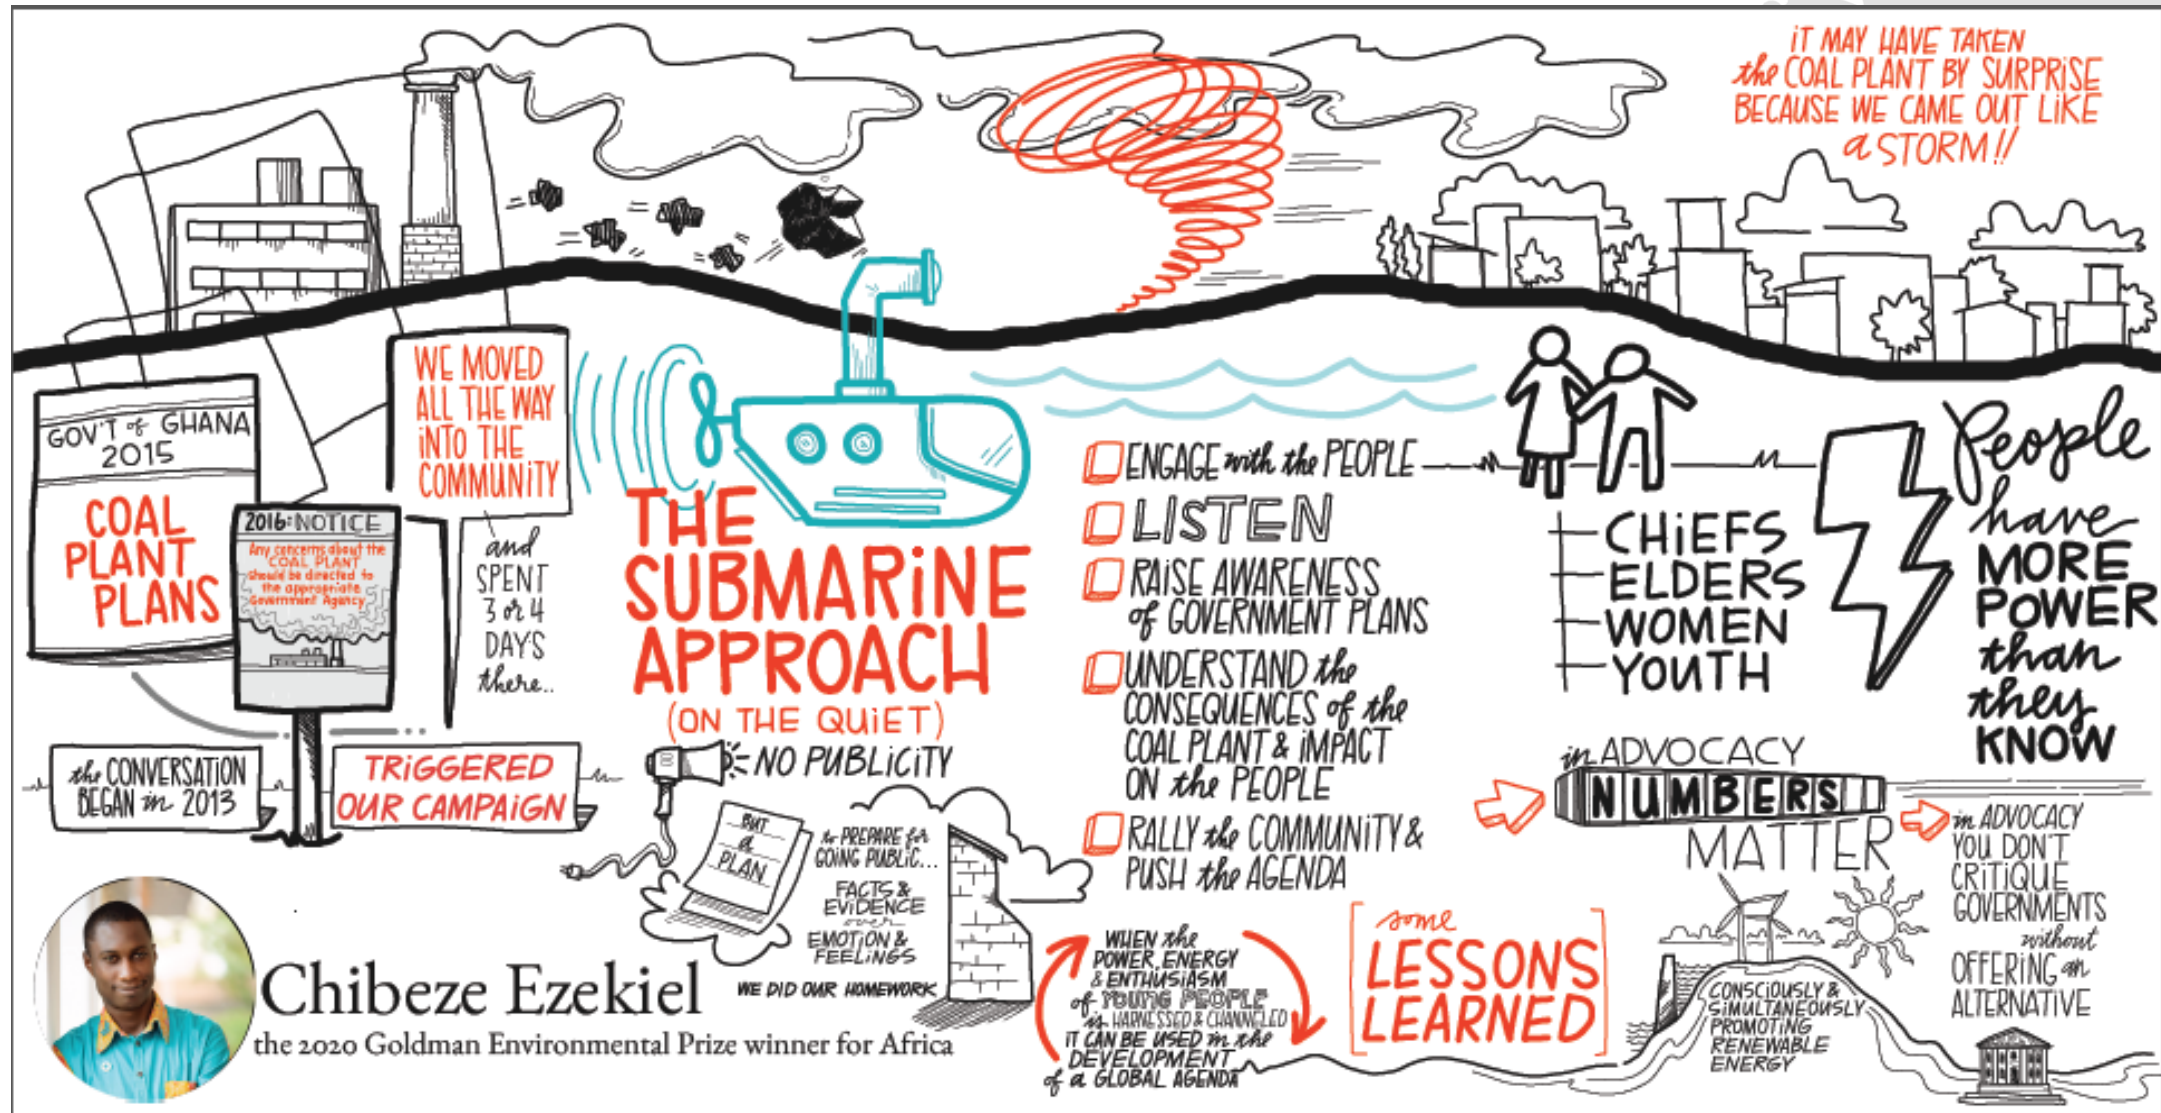 iT MAY HAVE TAKEN
the COAL PLANT BY SURPRiSE
BECAUSE WE CAME OUT LiKE
a STORM!!
GOV'T of GHANA
2015
COAL
PLANT
PLANS
2016: NOTICE
Any concerns about the
COAL PLANT
should be directed to
the appropriate
Government Agency
WE MOVED
ALL THE WAY
iNTO THE
COMMUNITY
and
SPENT
3 or 4
DAYS
there..
the CONVERSATION
BEGAN in 2013
TRiGGERED
OUR CAMPAiGN
THE
SUBMARiNE
APPROACH
(ON THE QUiET)
NO PUBLiCiTY
BUT
a
PLAN
to PREPARE for
GOING PUBLiC...
FACTS &
EViDENCE
over
EMOTiON &
FEELiNGS
WE DID OUR HOMEWORK
ENGAGE with the PEOPLE
LISTEN
RAiSE AWARENESS
of GOVERNMENT PLANS
UNDERSTAND the
CONSEQUENCES of the
COAL PLANT & iMPACT
ON the PEOPLE
RALLY the COMMUNiTY &
PUSH the AGENDA
CHiEFS
ELDERS
WOMEN
YOUTH
People
have
MORE
POWER
than
they
KNOW
in ADVOCACY
NUMBERS
MATTER
in ADVOCACY
YOU DON'T
CRiTiQUE
GOVERNMENTS
without
OFFERiNG an
ALTERNATiVE
CONSCiOUSLY &
SiMULTANEOUSLY
PROMOTiNG
RENEWABLE
ENERGY
some
LESSONS
LEARNED
WHEN the
POWER, ENERGY
& ENTHUSiASM
of YOUNG PEOPLE
is HARNESSED & CHANNELED
iT CAN BE USED in the
DEVELOPMENT
of a GLOBAL AGENDA
Chibeze Ezekiel
the 2020 Goldman Environmental Prize winner for Africa